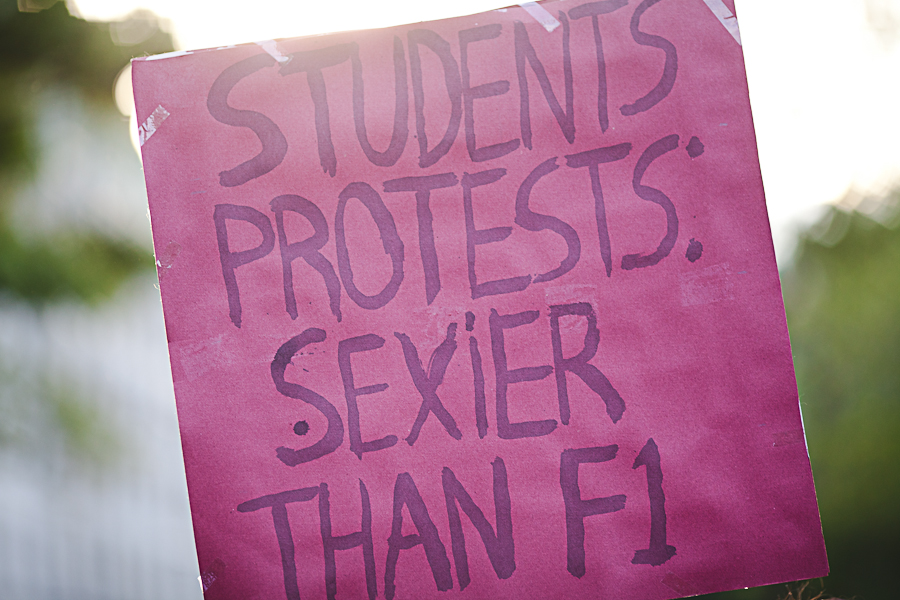 STUDENTS
PROTESTS:
SEXiER
THAN F1